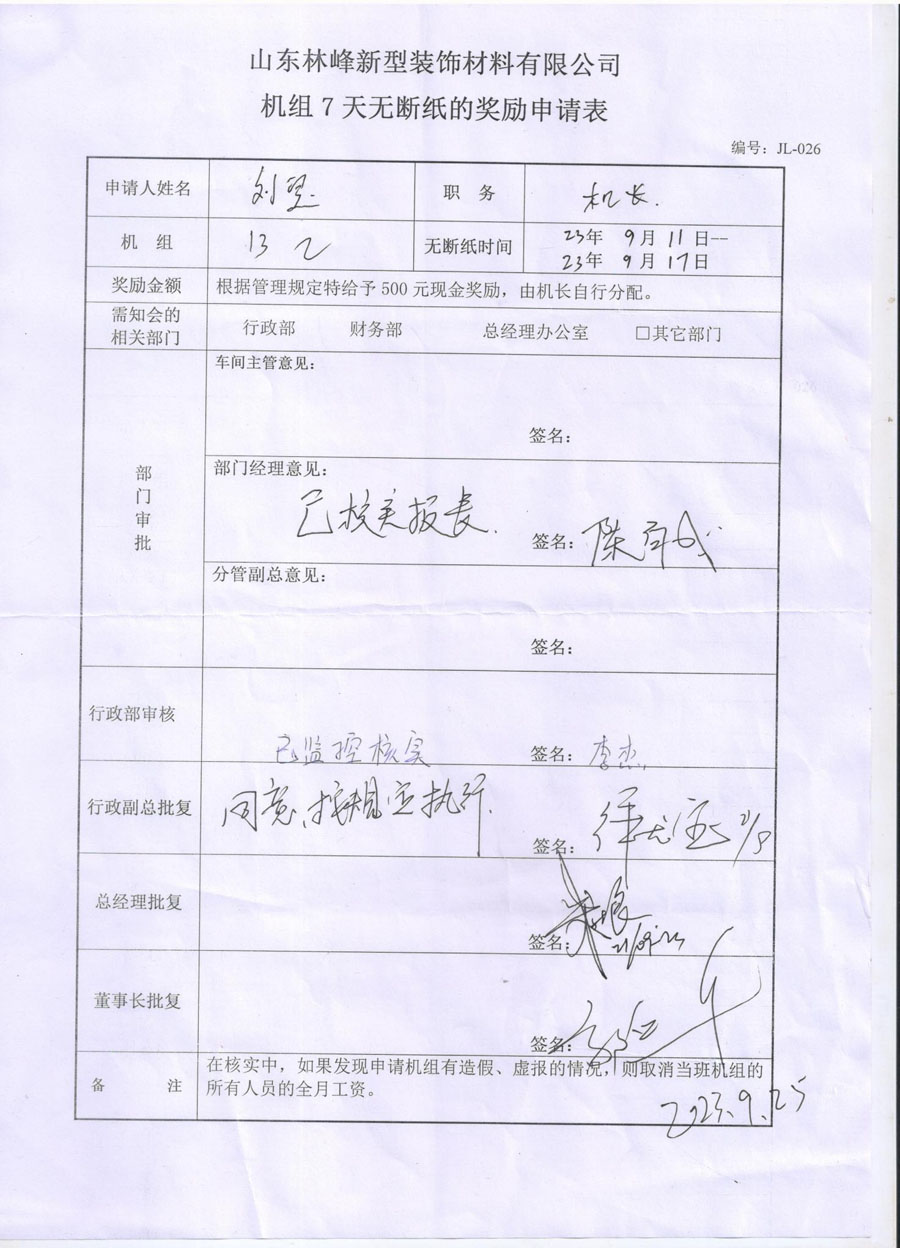 山东林峰新型装饰材料有限公司
机组7天无断纸的奖励申请表
编号：JL-026
申请人姓名 刘 职 务 机长.
机 组 13 乙 无断纸时间 23年 9月11日--
23年 9月17日
奖励金额 根据管理规定特给予500元现金奖励，由机长自行分配。
需知会的
相关部门 行政部 财务部 总经理办公室 □其它部门
车间主管意见：
签名：
部
门
审
批
部门经理意见：
已核实报表
签名：
分管副总意见：
签名：
行政部审核
已监控核实 签名：李杰
行政副总批复 同意、按规定执行.
签名： 21/9
总经理批复
签名： 21/09.23
董事长批复
签名：
备 注 在核实中，如果发现申请机组有造假、虚报的情况，则取消当班机组的
所有人员的全月工资。
2023.9.25